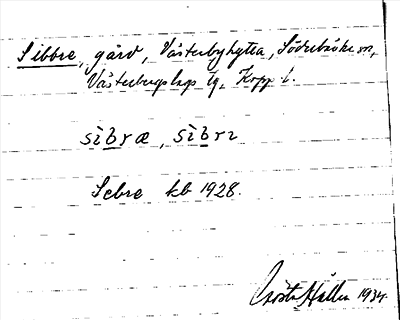 Sibbre, gård, Västerbyhytta, Söderbärke sn,
Västerbergslags tg, Kopp. l.
sìbræ, sìbrɪ
Sebre kb 1928.
Gösta Hallén 1934.